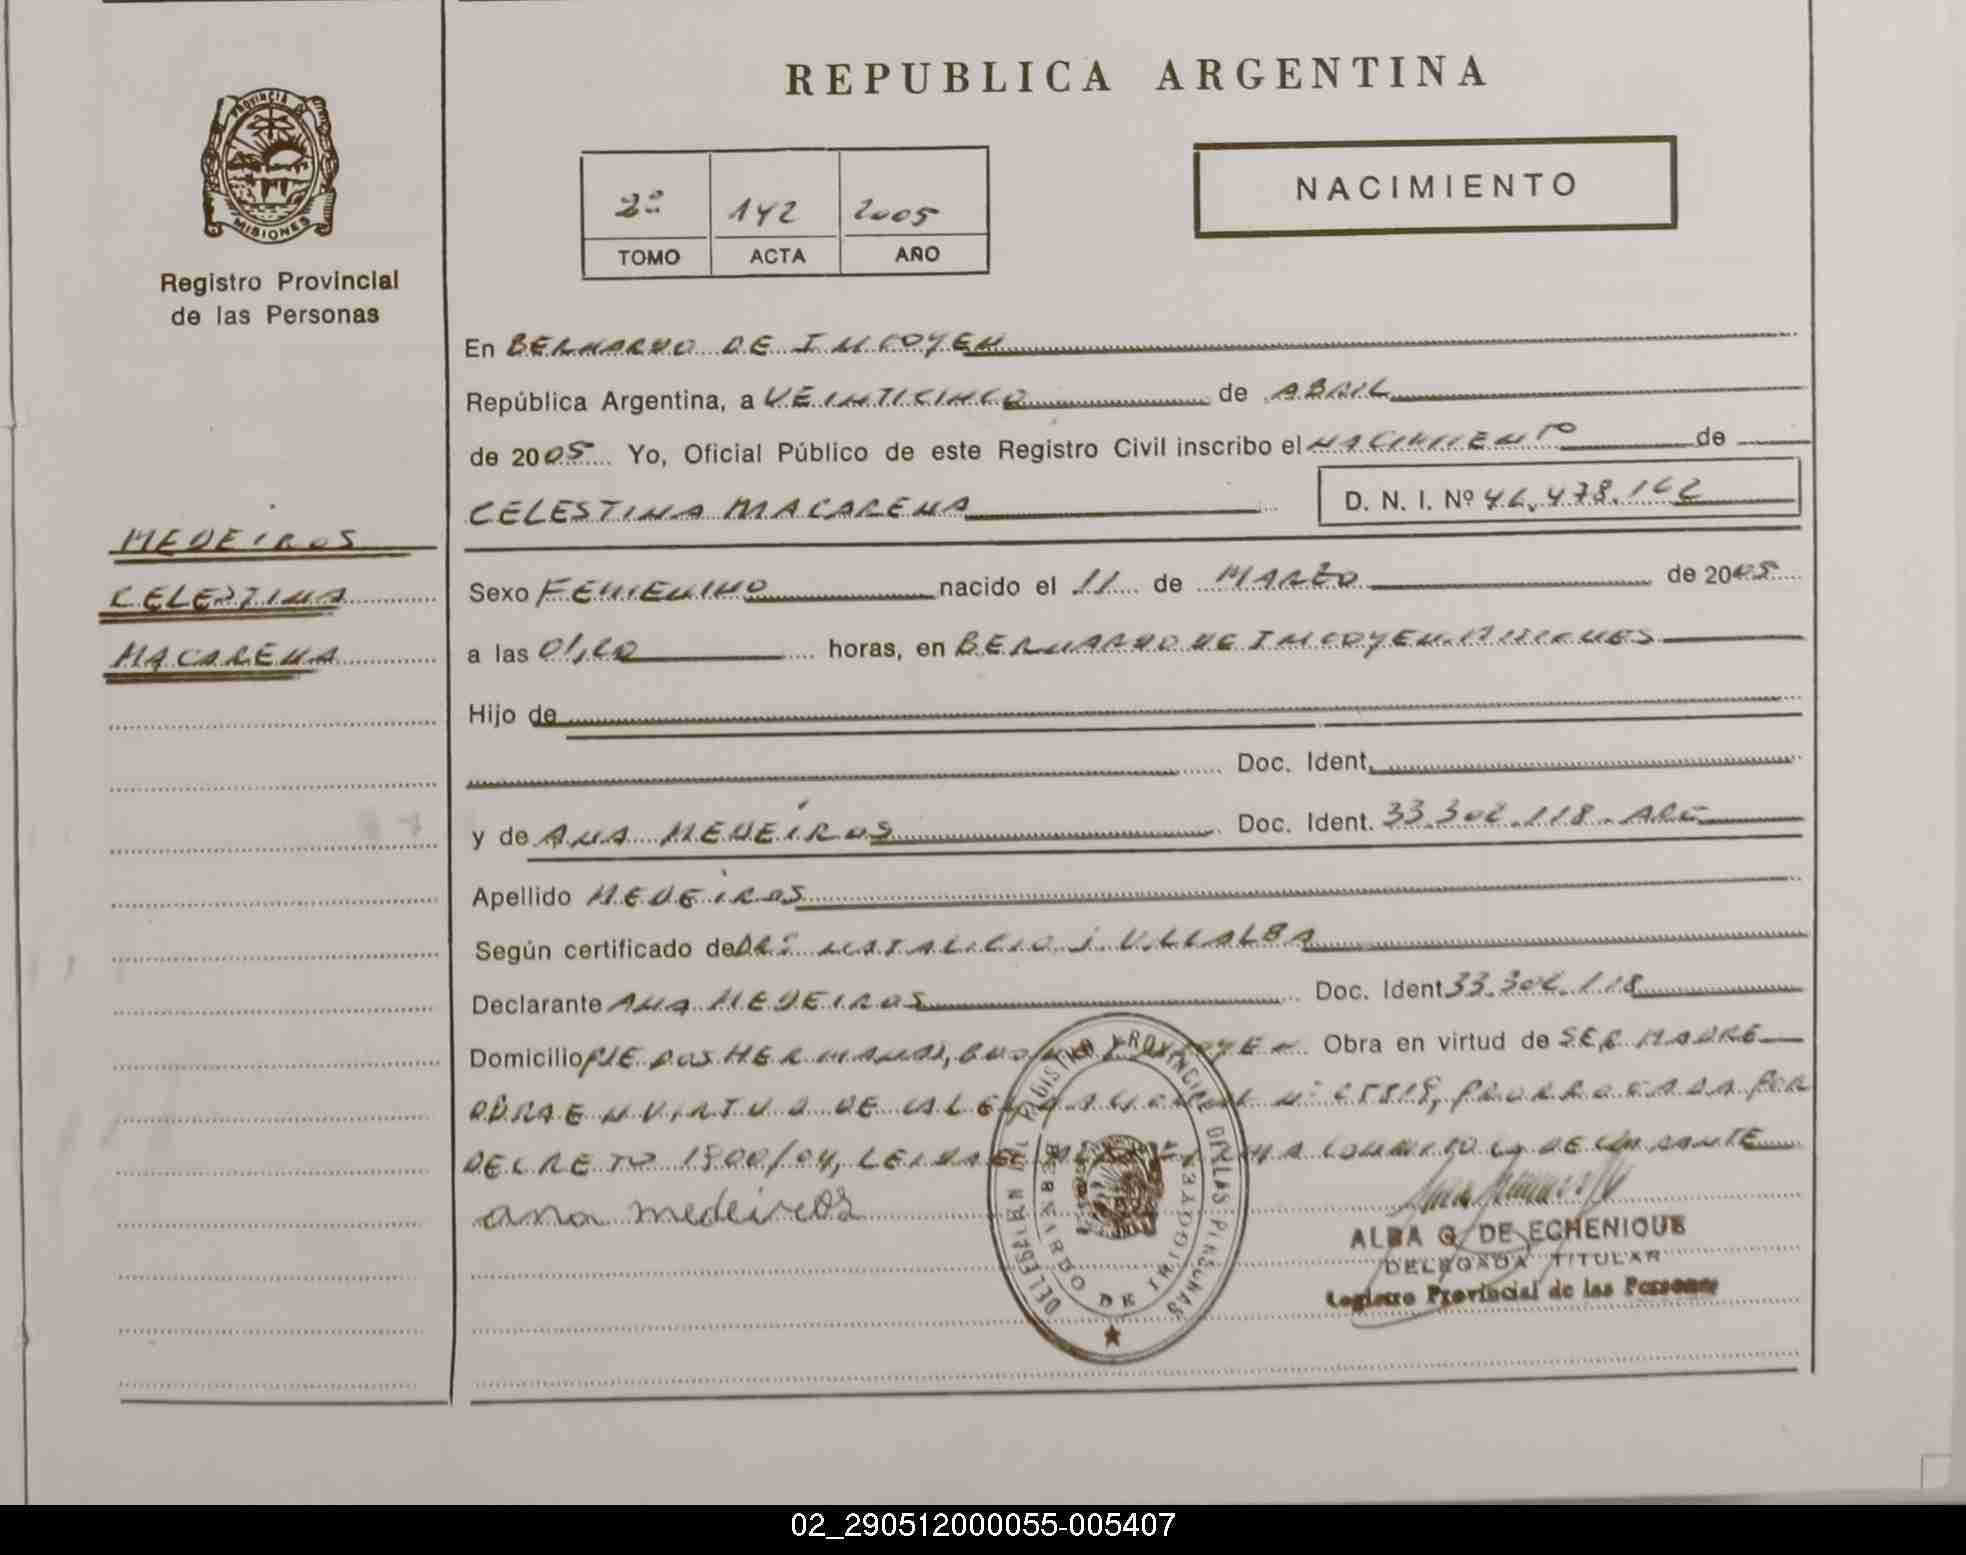 REPUBLICA ARGENTINA
PROVINCIA DE
MISIONES
Registro Provincial
de las Personas
NACIMIENTO
2º 142 2005
TOMO ACTA AÑO
En BERNARDO DE IRIGOYEN
República Argentina, a VEINTICINCO de ABRIL
de 2005 Yo, Oficial Público de este Registro Civil inscribo el NACIMIENTO de
CELESTINA MACARENA D. N. I. Nº 46.478.162
MEDEIROS
CELESTINA
MACARENA
Sexo FEMENINO nacido el 11 de MARZO de 2005
a las 01,20 horas, en BERNARDO DE IRIGOYEN.MISIONES
Hijo de
Doc. Ident.
y de ANA MEDEIROS Doc. Ident. 33.302.118. ARG
Apellido MEDEIROS
Según certificado de DR: NATALICIO J. VILLALBA
Declarante ANA MEDEIROS Doc. Ident 33.302.118
Domicilio PJE DOS HERMANAS, Obra en virtud de SER MADRE
OBRA EN VIRTUD DE LA LEY NACIONAL Nº 25819, PRORROGADA POR
DECRETO 1900/04, LEIDA EL ACTA LA FIRMA CONMIGO LA DECLARANTE
ana medeiros
DELEGACION DEL REGISTRO PROVINCIAL DE LAS PERSONAS
BERNARDO DE IRIGOYEN
ALBA G. DE ECHENIQUE
DELEGADA TITULAR
Registro Provincial de las Personas
02_290512000055-005407